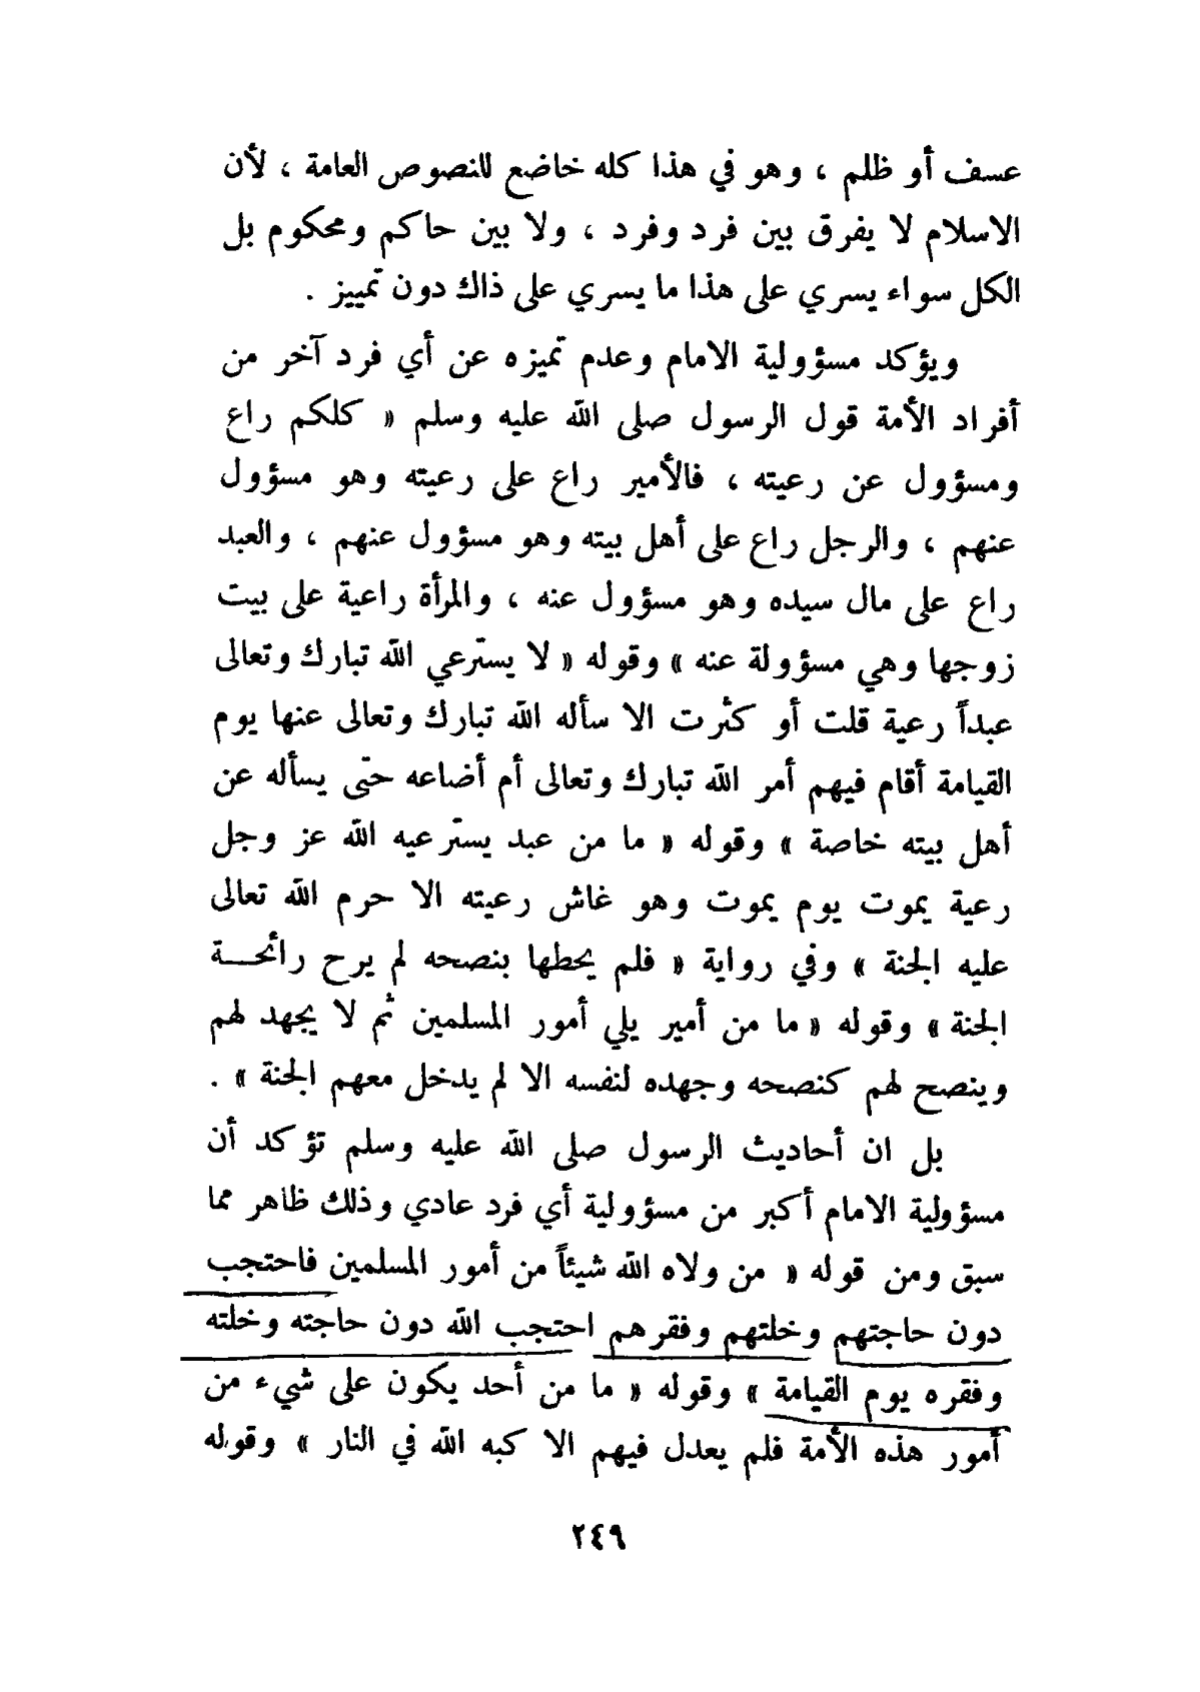 عسف أو ظلم ، وهو في هذا كله خاضع للنصوص العامة ، لأن
الاسلام لا يفرق بين فرد وفرد ، ولا بين حاكم ومحكوم بل
الكل سواء يسري على هذا ما يسري على ذاك دون تمييز .
ويؤكد مسؤولية الامام وعدم تميزه عن أي فرد آخر من
أفراد الأمة قول الرسول صلى الله عليه وسلم « كلكم راع
ومسؤول عن رعيته ، فالأمير راع على رعيته وهو مسؤول
عنهم ، والرجل راع على أهل بيته وهو مسؤول عنهم ، والعبد
راع على مال سيده وهو مسؤول عنه ، والمرأة راعية على بيت
زوجها وهي مسؤولة عنه » وقوله « لا يسترعي الله تبارك وتعالى
عبداً رعية قلت أو كثرت الا سأله الله تبارك وتعالى عنها يوم
القيامة أقام فيهم أمر الله تبارك وتعالى أم أضاعه حتى يسأله عن
أهل بيته خاصة » وقوله « ما من عبد يسترعيه الله عز وجل
رعية يموت يوم يموت وهو غاش رعيته الا حرم الله تعالى
عليه الجنة » وفي رواية « فلم يحطها بنصحه لم يرح رائحـــة
الجنة » وقوله « ما من أمير يلي أمور المسلمين ثم لا يجهد لهم
وينصح لهم كنصحه وجهده لنفسه الا لم يدخل معهم الجنة » .
بل ان أحاديث الرسول صلى الله عليه وسلم تؤكد أن
مسؤولية الامام أكبر من مسؤولية أي فرد عادي وذلك ظاهر مما
سبق ومن قوله « من ولاه الله شيئاً من أمور المسلمين فاحتجب
دون حاجتهم وخلتهم وفقرهم احتجب الله دون حاجته وخلته
وفقره يوم القيامة » وقوله « ما من أحد يكون على شيء من
أمور هذه الأمة فلم يعدل فيهم الا كبه الله في النار » وقوله
٢٤٩